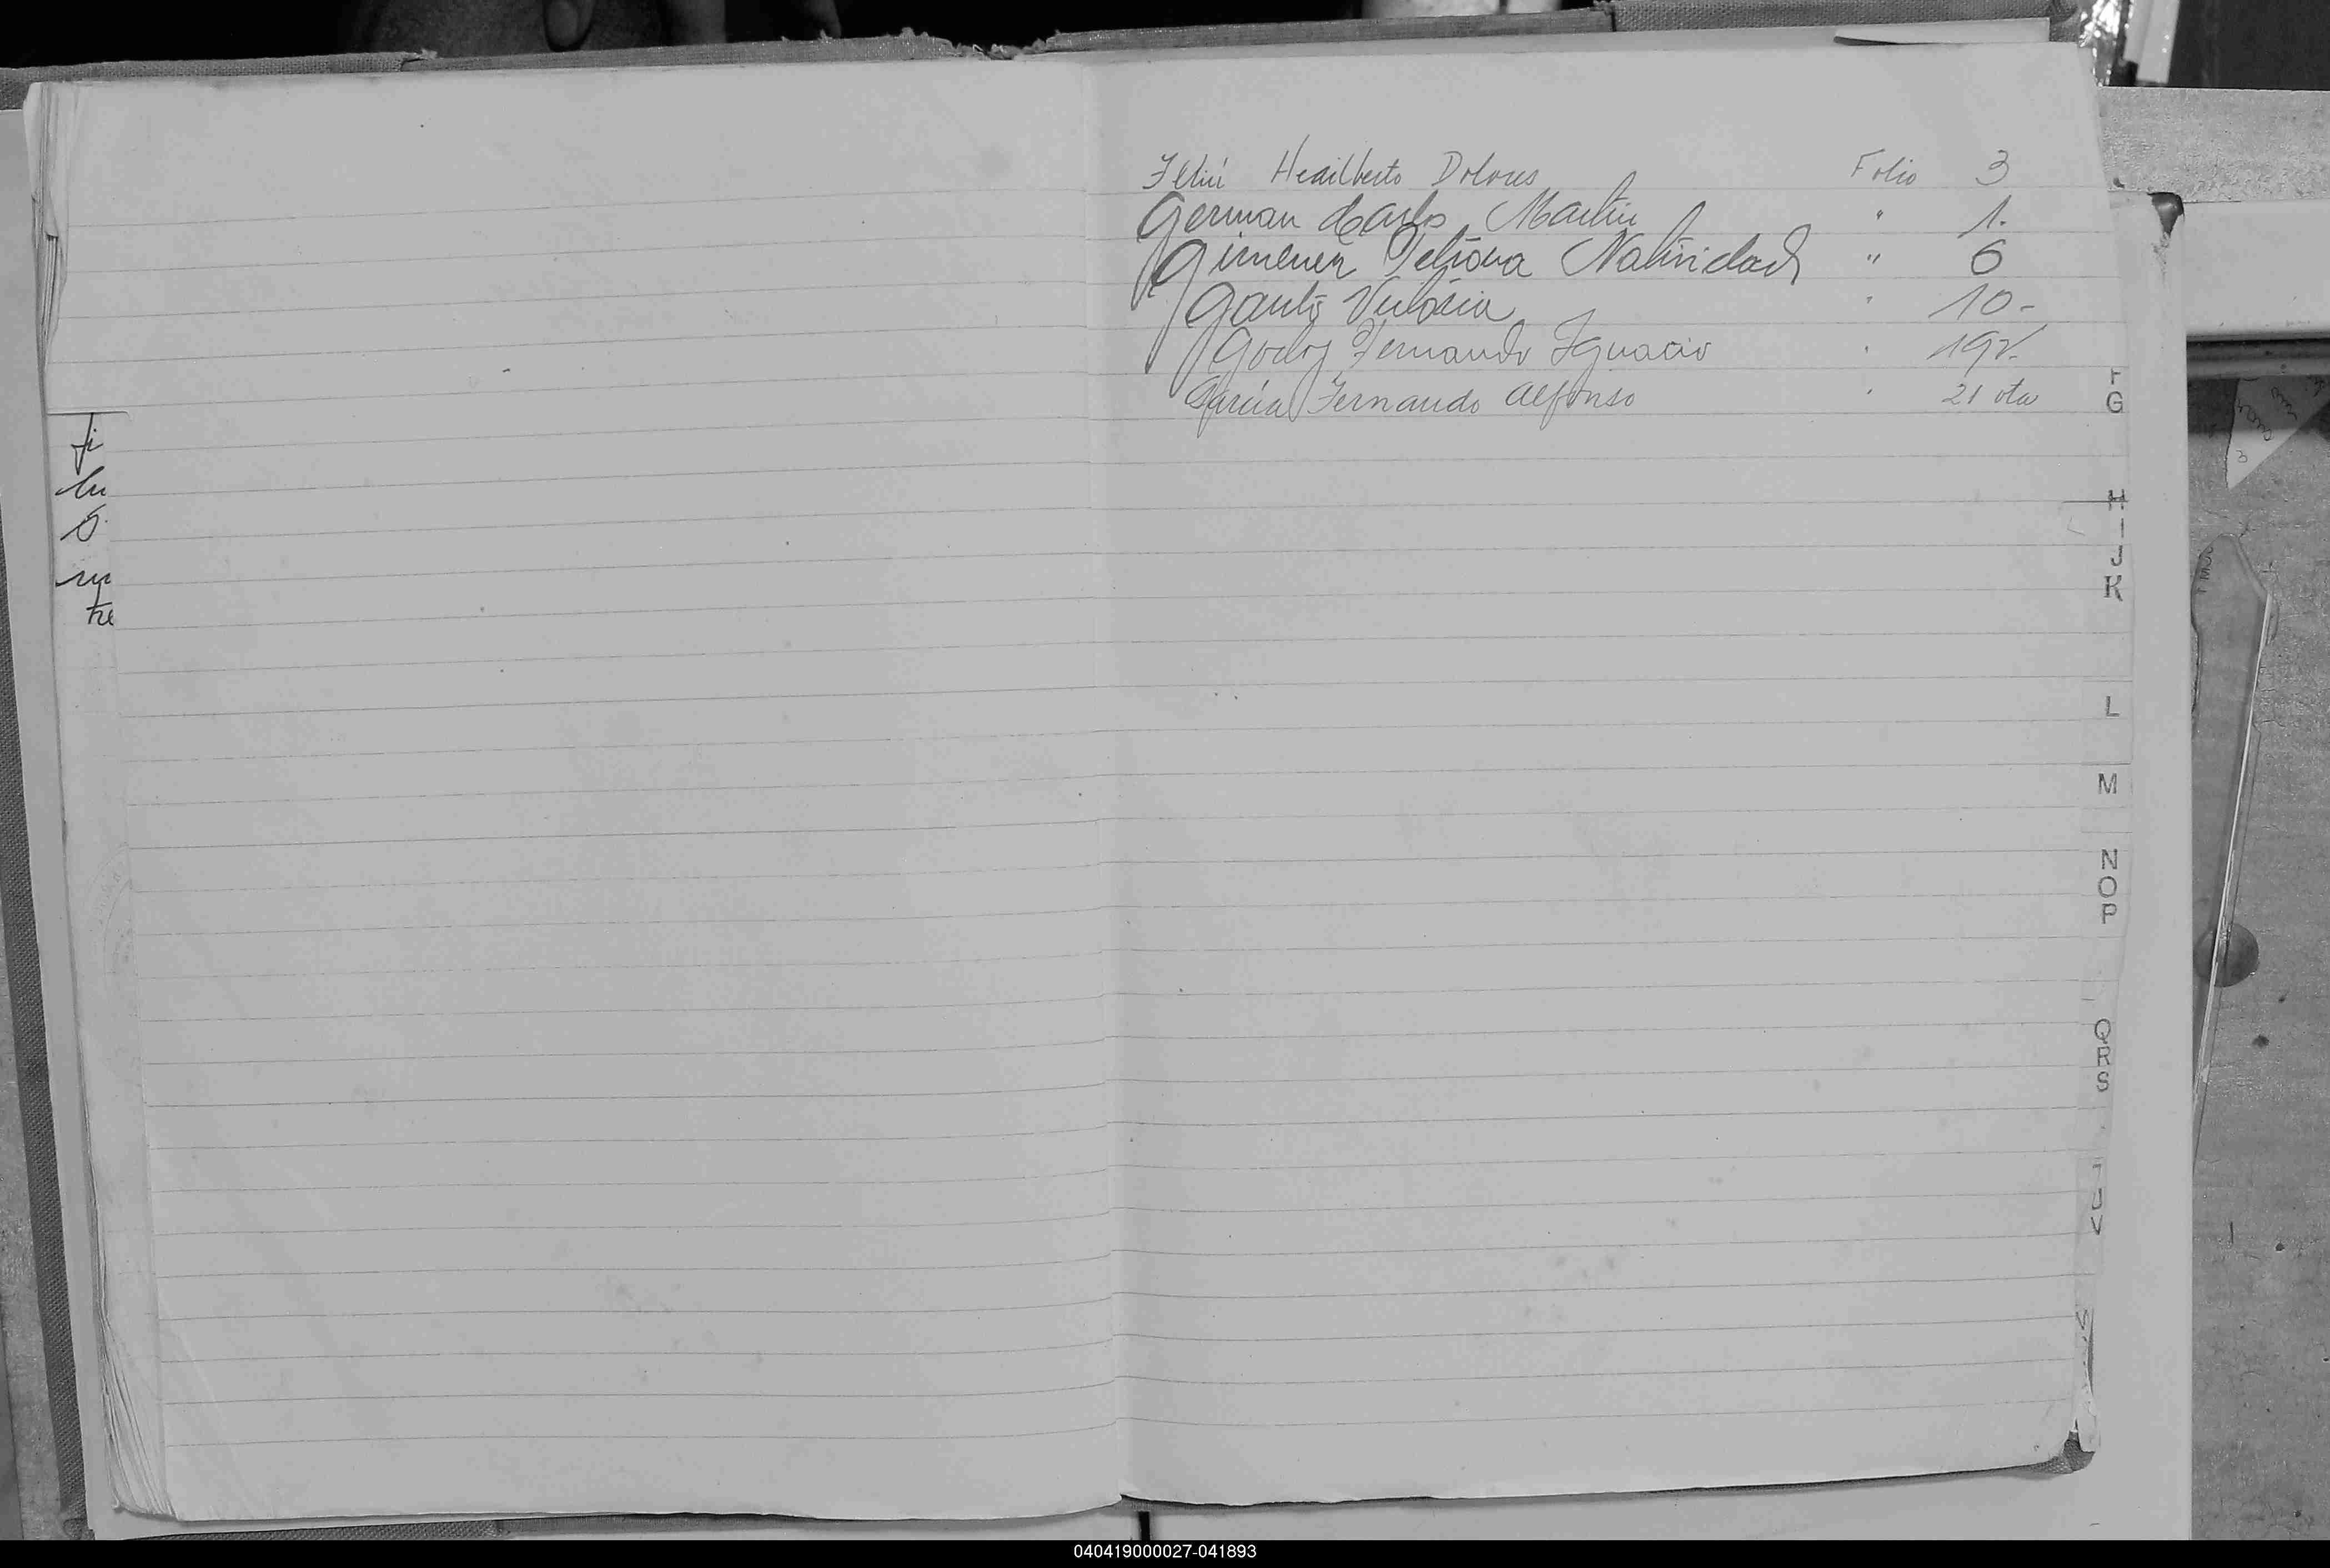 Feliú Hedilberto Dolores Folio 3
German Carlos Martin " 1.
Gimenez Petrona Natividad " 6
Gauto Victoria " 10-
Godoy Fernando Ignacio " 19v.
García Fernando Alfonso " 21 vta
fi
lu
F
G
H
I
J
K
L
M
N
O
P
Q
R
S
T
U
V
040419000027-041893